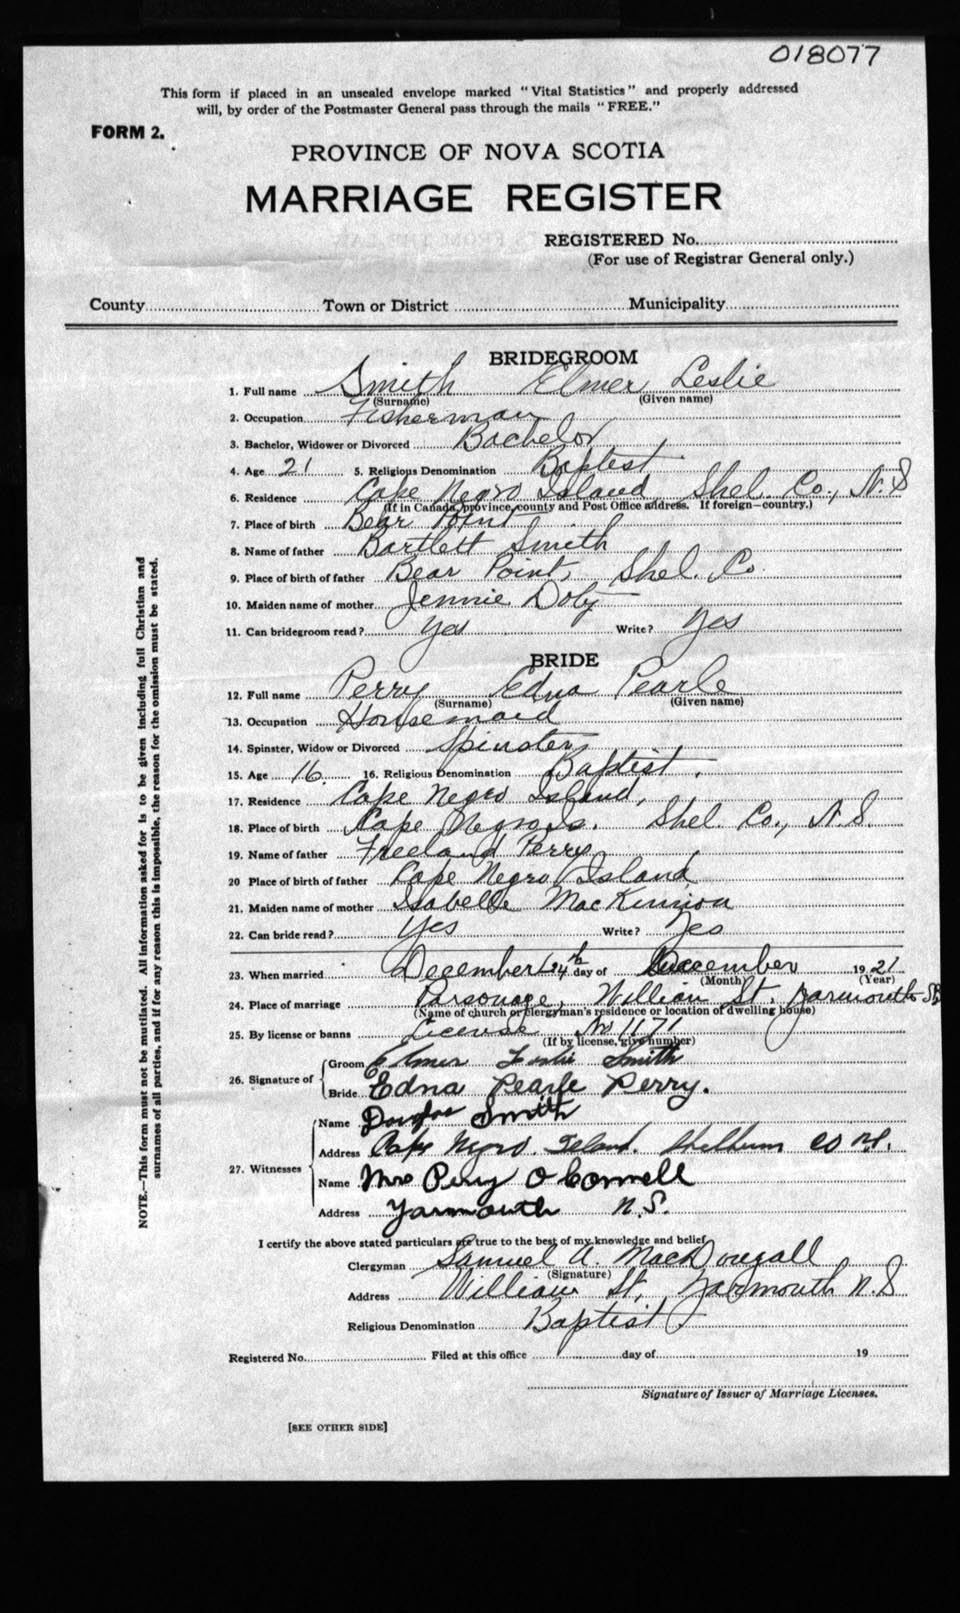 018077
This form if placed in an unsealed envelope marked "Vital Statistics" and properly addressed
will, by order of the Postmaster General pass through the mails "FREE."
FORM 2.
PROVINCE OF NOVA SCOTIA
MARRIAGE REGISTER
REGISTERED No.
(For use of Registrar General only.)
County Town or District Municipality
BRIDEGROOM
1. Full name Smith Elmer Leslie
(Surname) (Given name)
2. Occupation Fisherman
3. Bachelor, Widower or Divorced Bachelor
4. Age 21 5. Religious Denomination Baptist
6. Residence Cape Negro Island, Shel. Co., N.S
(If in Canada, province, county and Post Office address. If foreign—country.)
7. Place of birth Bear Point
8. Name of father Bartlett Smith
9. Place of birth of father Bear Point, Shel. Co.
10. Maiden name of mother Jennie Doby
11. Can bridegroom read? Yes Write? Yes
BRIDE
12. Full name Perry Edna Pearle
(Surname) (Given name)
13. Occupation Housemaid
14. Spinster, Widow or Divorced Spinster
15. Age 16 16. Religious Denomination Baptist.
17. Residence Cape Negro Island,
18. Place of birth Cape Negro Is. Shel. Co., N.S.
19. Name of father Freeland Perry
20 Place of birth of father Cape Negro Island
21. Maiden name of mother Isabelle MacKinnon
22. Can bride read? Yes Write? Yes
23. When married December 24th day of December 1921
(Month) (Year)
24. Place of marriage Parsonage, William St. Yarmouth
(Name of church or clergyman's residence or location of dwelling house)
25. By license or banns License No 1171
(If by license, give number)
26. Signature of Groom Elmer Leslie Smith
Bride Edna Pearle Perry.
27. Witnesses
Name Douglas Smith
Address Cape Negro. Island. Shelburn co N.S.
Name Mrs Percy O Connell
Address Yarmouth N.S.
I certify the above stated particulars are true to the best of my knowledge and belief
Clergyman Samuel A. MacDougall
(Signature)
Address William St, Yarmouth N.S
Religious Denomination Baptist.
Registered No. Filed at this office day of 19
Signature of Issuer of Marriage Licenses.
[SEE OTHER SIDE]
NOTE.—This form must not be mutilated. All information asked for is to be given including full Christian and
surnames of all parties, and if for any reason this is impossible, the reason for the omission must be stated.